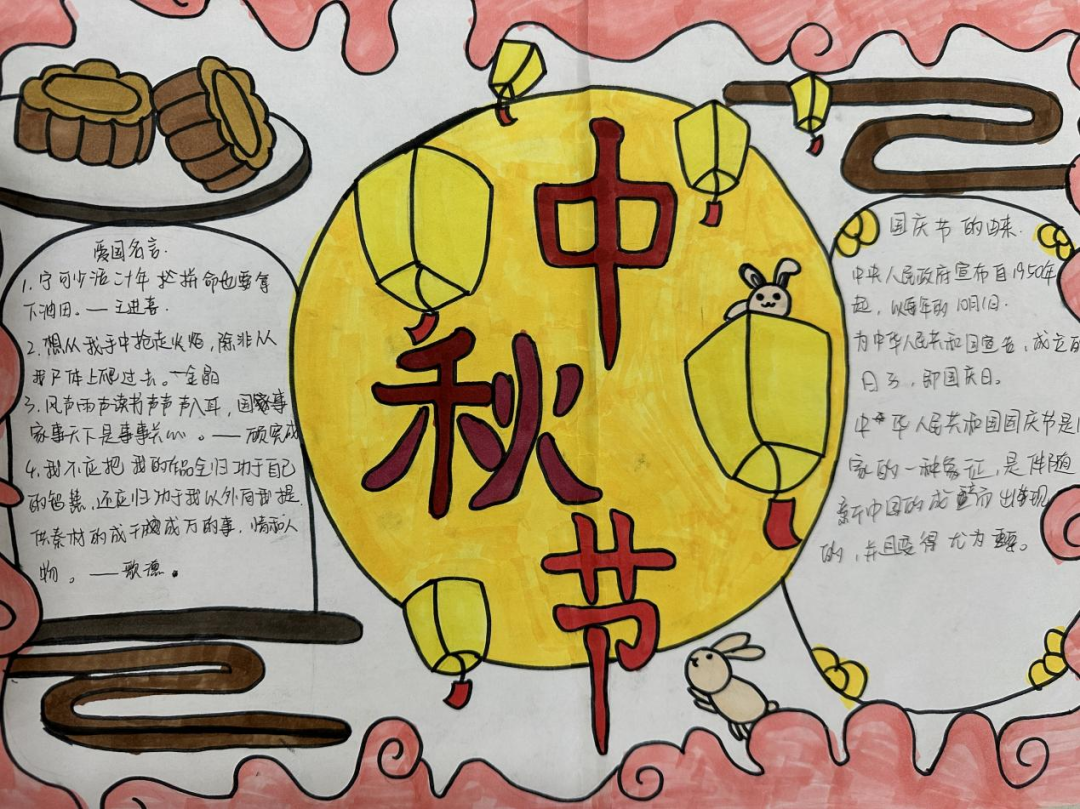 中
秋
节
爱国名言.
1. 宁可少活二十年 拼命也要拿
下油田。——王进喜.
2. 想从我手中抢走火焰，除非从
我尸体上爬过去。—金晶
3. 风声雨声读书声声声入耳，国事
家事天下是事事关心。——顾宪成
4. 我不应把 我的作品全归功于自己
的智慧，还应归功于我以外向我提
供素材的成千成万的事，情和人
物。——歌德.
国庆节 的由来.
中央人民政府宣布自1950年
起，以每年的10月1日.
为中华人民共和国宣告，成立的
日子，即国庆日。
中华人民共和国国庆节是
家的一种象征，是伴随
新中国的成 而出现
的，并且变得 尤为重要。